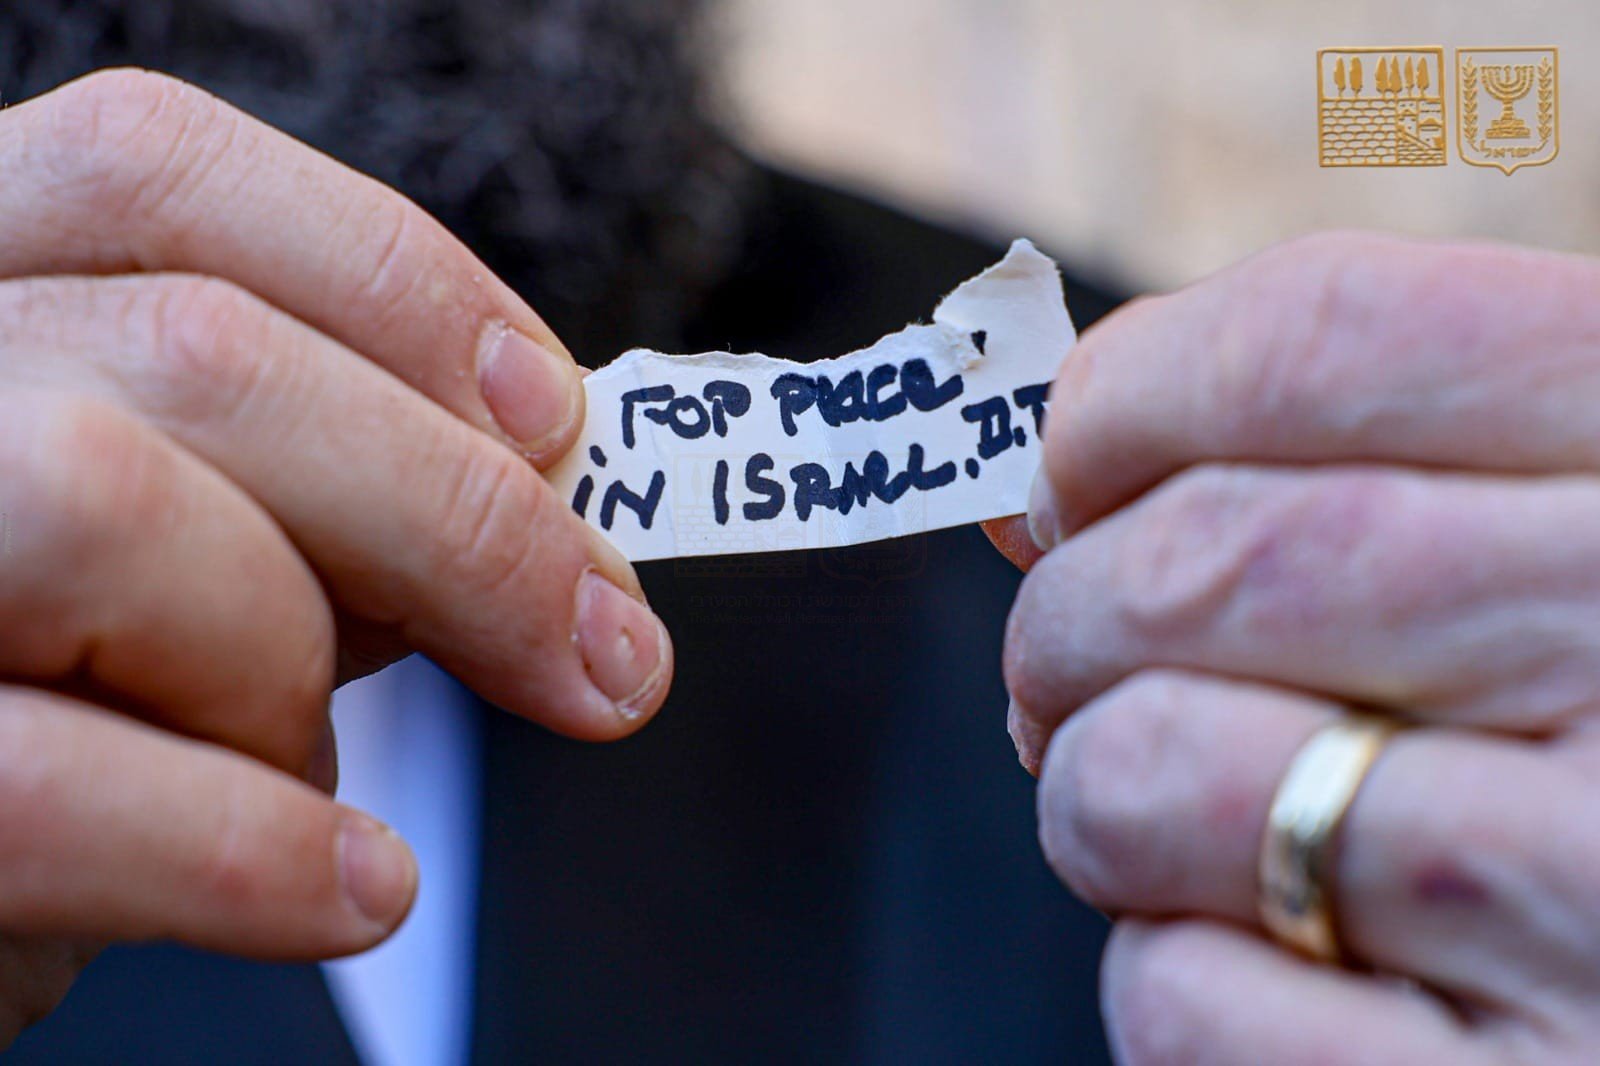 FOR PEACE
iN ISRAEL. D.
ישראל
ישראל
הקרן למורשת הכותל המערבי
The Western Wall Heritage Foundation